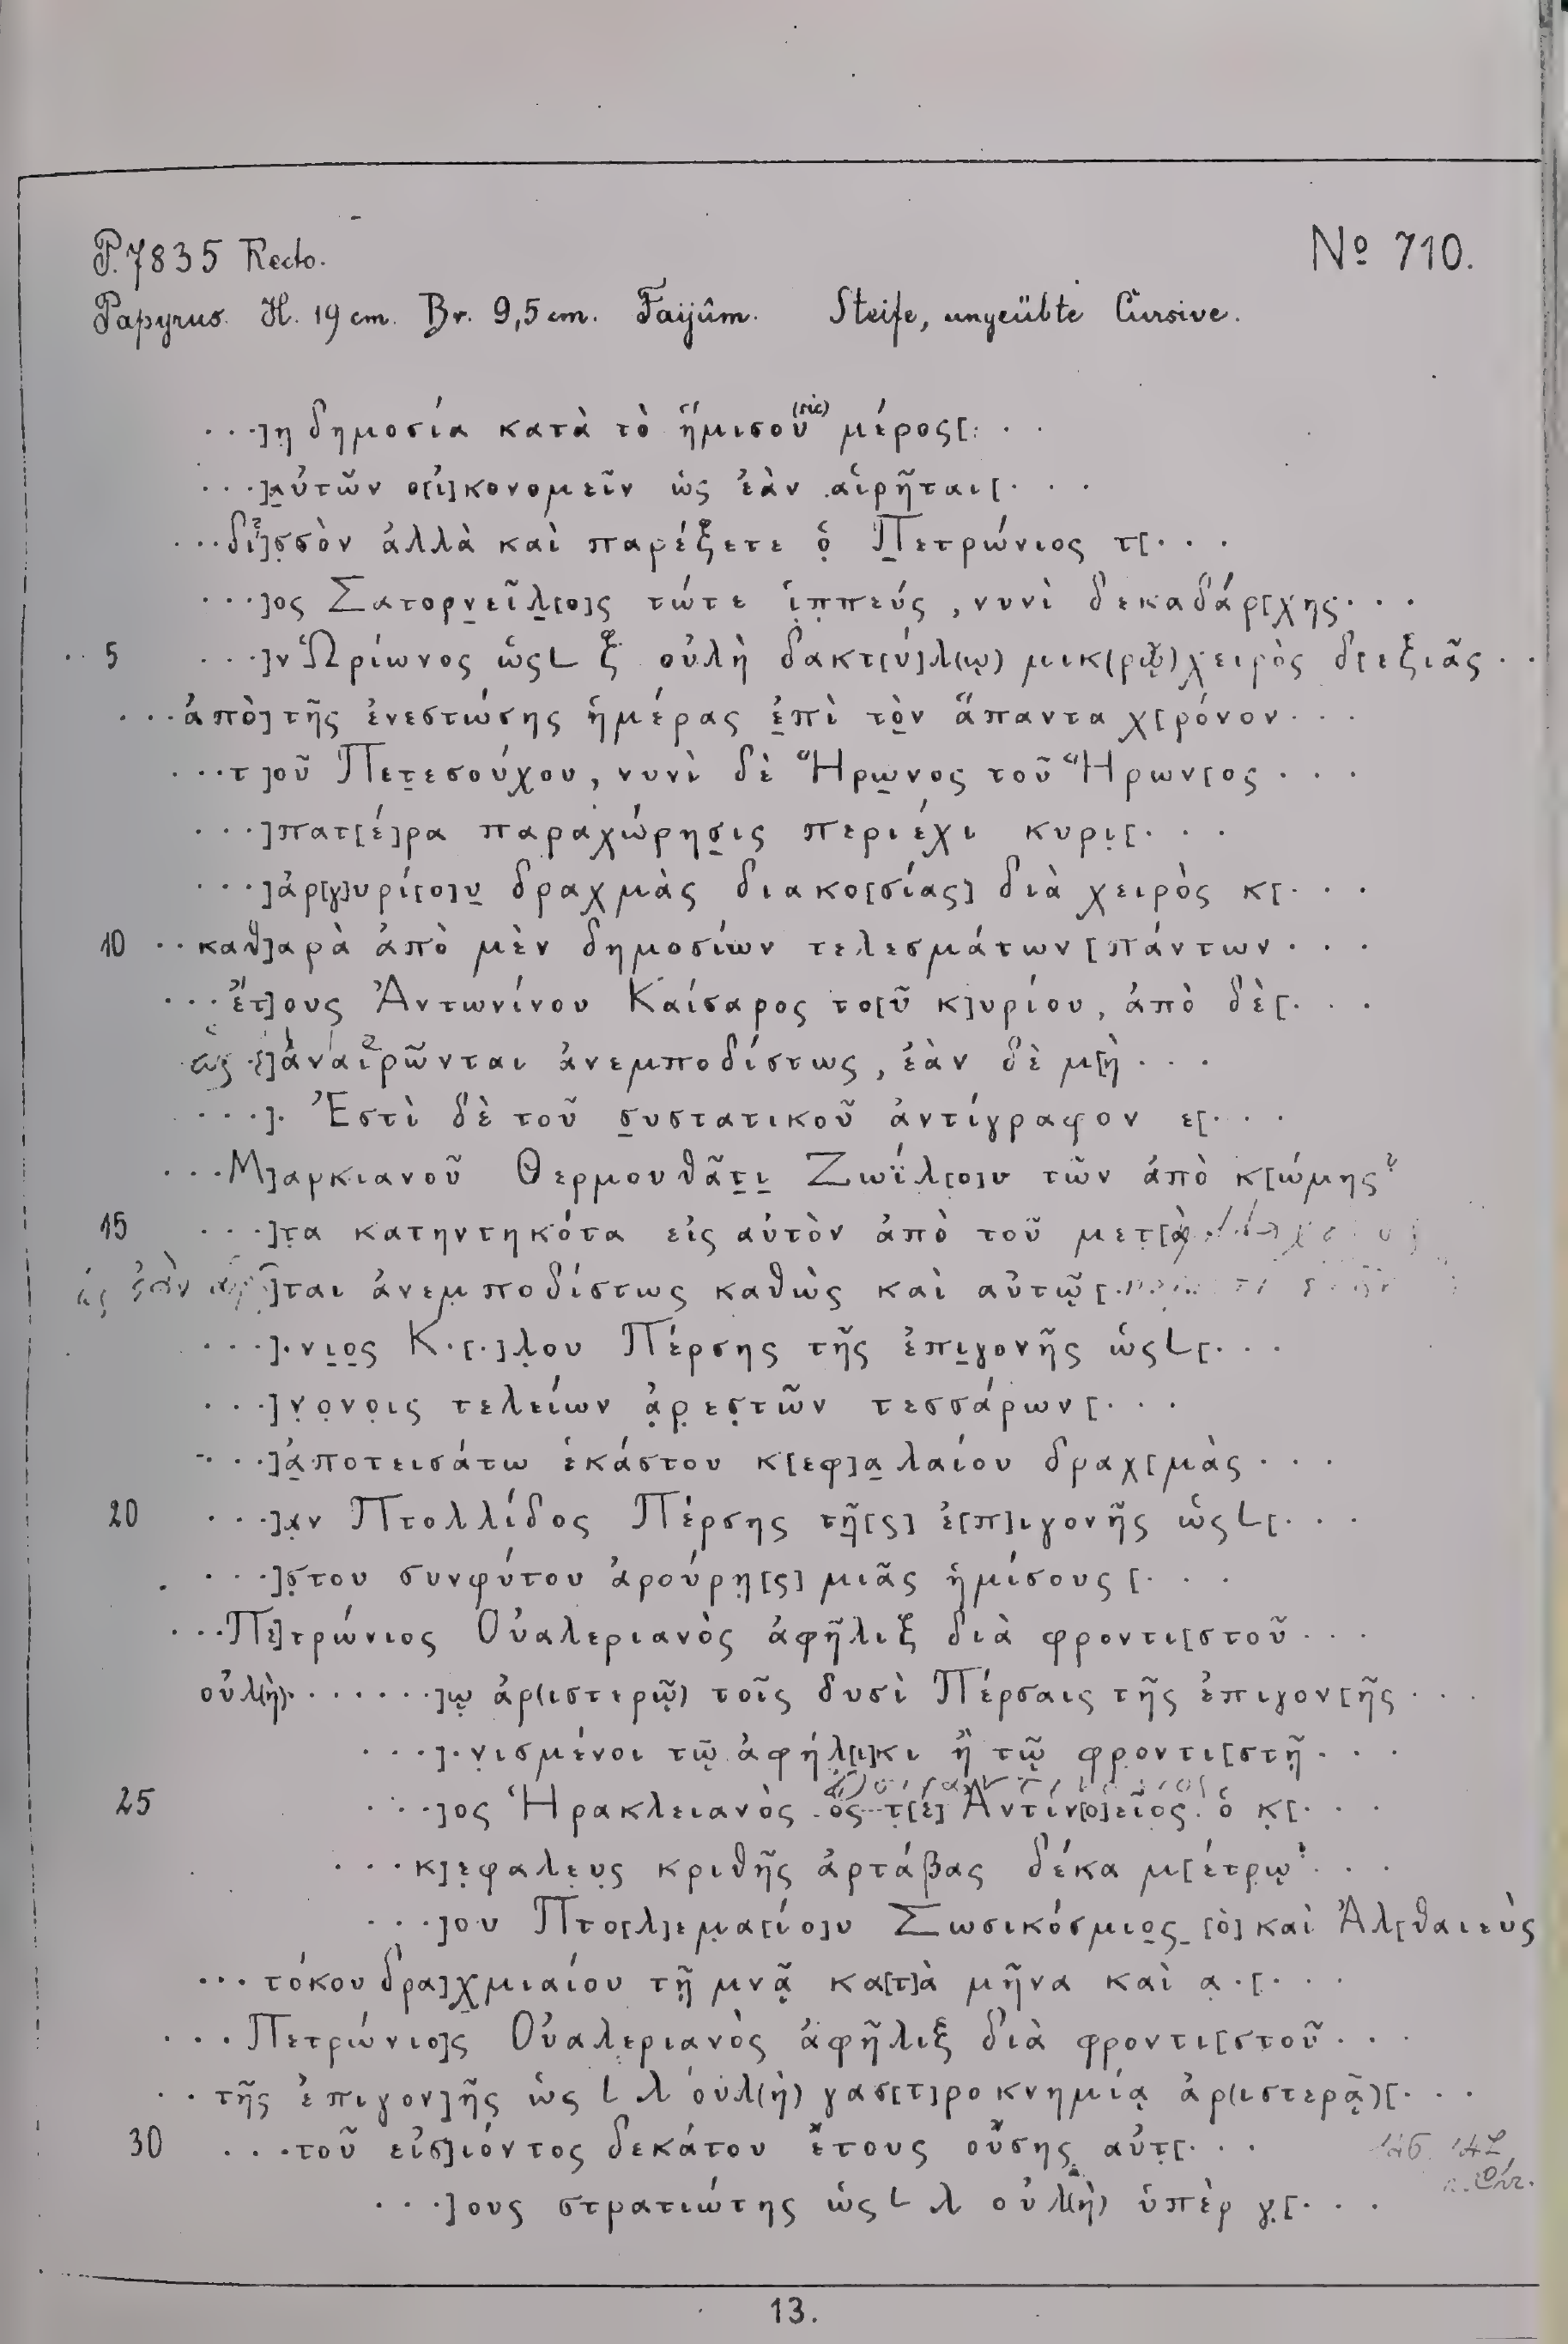 P. 7835 Recto. No 710.
Papyrus. H. 19 cm. Br. 9,5 cm. Faijûm. Steife, ungeübte Cursive.
. . .]η̣ δημοσία κατὰ τὸ ἥμισου (sic) μέρος[. . .
. . .]α̣ὐτῶν ο[ἰ]κονομεῖν ὡς ἐὰν αἱρῆται[. . .
. . .δι]σ̣σὸν ἀλλὰ καὶ παρέξετε ὁ̣ Π̣ετρώνιος τ[. . .
. . .]ος Σατορν̣εῖλ̣[ο]ς τώτε ἱ̣π̣πεύς, νυνὶ δεκαδάρ[χης. . .
5 . . .]ν Ὡρίωνος ὡς L ξ οὐλὴ δακτ[ύ]λ(ῳ) μικ(ρῷ) χειρὸς δ[εξιᾶς . .
. . .ἀπὸ] τῆς ἐνεστώσης ἡμέρας ἐ̣πὶ τὸ̣ν ἅπαντα χ[ρόνον. . .
. . .τ]οῦ Πετ̣εσούχου, νυνὶ δὲ Ἥρω̣νος τοῦ Ἥρων[ος . . .
. . .]πατ[έ]ρα παραχώρησ̣ις περιέχι κυρι̣[. . .
. . .]ἀρ[γ]υρί[ο]υ̣ δραχμὰς διακο[σίας] διὰ χειρὸς κ[. . .
10 . . καθ]αρὰ ἀπὸ μὲν δημοσίων τελεσμάτων [πάντων. . .
. . .ἔτ]ους Ἀντωνίνου Καίσαρος το[ῦ κ]υρίου, ἀπὸ δὲ[. . .
]ἀναιρῶνται ἀνεμποδίστως, ἐὰν δὲ μ[ὴ. . .
. . .]. Ἐστὶ δὲ τοῦ σ̣υστατικοῦ ἀντίγραφον ε[. . .
. . .Μ]αρκιανοῦ Θερμουθᾶτ̣ι̣ Ζωΐλ[ο]υ τῶν ἀπὸ κ[ώμης?
15 . . .]τ̣α κατηντηκότα εἰς αὐτὸν ἀπὸ τοῦ μετ̣[ὰ
ὡς ἐὰν αἱρῆ]ται ἀνεμποδίστως καθὼς καὶ αὐτῷ[
. . .].νι̣ο̣ς Κ.[.]λ̣ου Πέρσης τῆς ἐπι̣γονῆς ὡς L[. . .
. . .]ν̣ο̣νο̣ις τελείων ἀ̣ρ̣εσ̣τῶν τεσσάρων[. . .
. . .]ἀ̣ποτεισάτω ἑκάστου κ[εφ]α̣λαίου δραχ[μὰς . . .
20 . . .]α̣ν Πτολλίδος Πέρσης τῆ̣[ς] ἐ[π]ιγονῆς ὡς L[. . .
. . .]σ̣του συνφύτου ἀρούρη̣[ς] μιᾶς ἡμίσους [. . .
. . .Πε]τρώνιος Οὐαλεριανὸς ἀφῆλιξ διὰ φροντι[στοῦ. . .
οὐλ(ὴ). . . . . . .]ῳ ἀρ(ιστερῷ) τοῖς δυσὶ Πέρσαις τῆς ἐπιγον[ῆς . . .
. . .].νισμένοι τῷ ἀφήλ[ι]κι ἢ τῷ φροντι[στῇ. . .
25 . . .]ος Ἡρακλειανὸς ὅς τ̣[ε] Ἀντιν[ο]εῖος ὁ κ̣[. . .
. . .κ]ε̣φαλε̣υ̣ς κριθῆς ἀρτάβας δέκα μ[έτρῳ?. . .
. . .]ου Πτο[λ]εμ̣α[ίο]υ Σωσικόσμιο̣ς̣ [ὁ] καὶ Ἀλ[θαιεὺς
. . . τόκου δρα]χ̣μιαίου τῇ μνᾷ κα[τ]ὰ μῆνα καὶ α̣.[. . .
. . . Πετρώνιο]ς Οὐαλεριανὸς ἀφῆλιξ διὰ φροντι[στοῦ. . .
. . τῆς ἐπιγον]ῆς ὡς L λ οὐλ(ὴ) γασ[τ]ροκνημίᾳ ἀρ(ιστερᾷ)[. . .
30 . . .τοῦ εἰσ]ιόντος δεκάτου ἔτους οὔσης αὐτ̣[. . .
. . .]ους στρατιώτης ὡς L λ οὐλ(ὴ) ὑπὲρ γ̣[. . .
13.